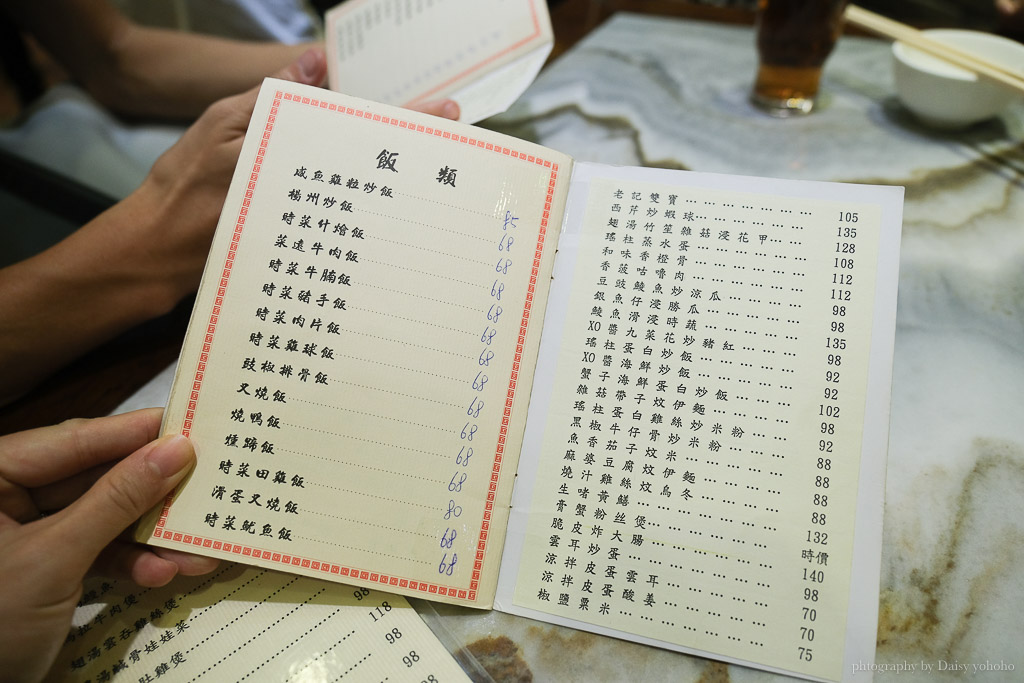 飯 類
咸魚雞粒炒飯 85
楊州炒飯 68
時菜什燴飯 68
菜遠牛肉飯 68
時菜牛腩飯 68
時菜豬手飯 68
時菜肉片飯 68
時菜雞球飯 68
豉椒排骨飯 68
叉燒飯 68
燒鴨飯 68
燻蹄飯 68
時菜田雞飯 80
滑蛋叉燒飯 68
時菜魷魚飯 68
老記雙寶 105
西芹炒蝦球 135
翅湯竹笙雜菇浸花甲 128
瑤柱蒸水蛋 108
和味香橙骨 112
香菠咕嚕肉 112
豆豉鯪魚炒涼瓜 98
銀魚仔浸勝瓜 98
鯪魚滑浸時蔬 135
XO醬九菜花炒豬紅 98
瑤柱蛋白炒飯 92
XO醬海鮮炒飯 92
蟹子海鮮蛋白炒飯 102
雜菇帶子炆伊麵 98
瑤柱蛋白雞絲炒米粉 92
黑椒牛仔骨炒米粉 88
魚香茄子炆米 88
麻婆豆腐炆伊麵 88
燒汁雞絲炆烏冬 88
生啫黃鱔 132
膏蟹粉丝煲 時價
脆皮炸大腸 140
雲耳炒蛋 98
涼拌皮蛋雲耳 70
涼拌皮蛋酸姜 70
椒鹽粟米 75
牛肉煲 98
翅湯雲吞雞絲煲 118
骨娃娃菜 98
肚雞煲 98
photography by Daisy yohoho